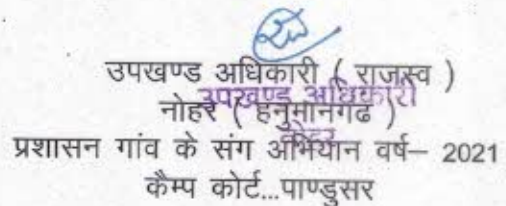 उपखण्ड अधिकारी ( राजस्व )
उपखण्ड अधिकारी
नोहर ( हनुमानगढ )
नोहर
प्रशासन गांव के संग अभियान वर्ष– 2021
कैम्प कोर्ट...पाण्डुसर